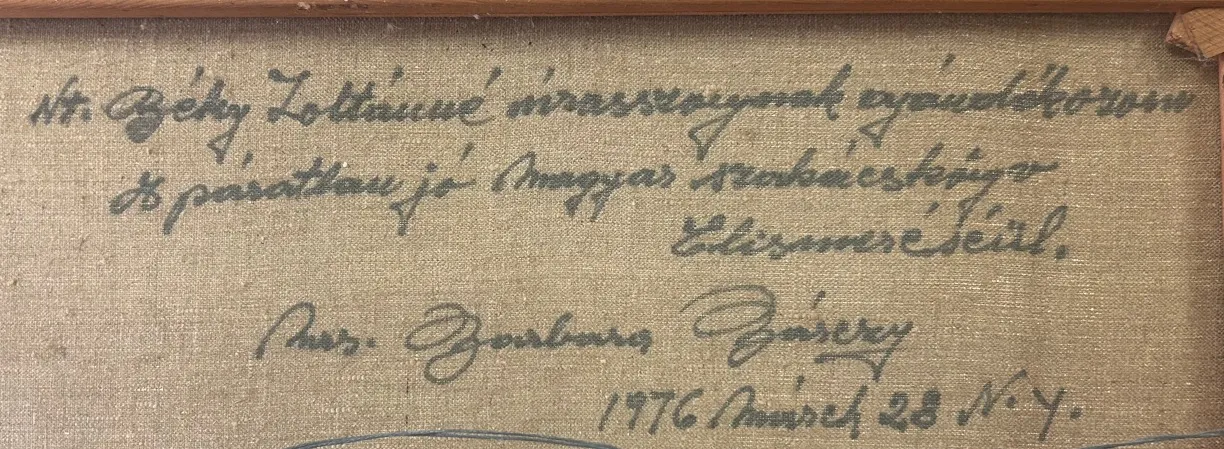 Nt. Béky Zoltánné úrasszonynak ajándékozom
A páratlan jó Magyar szakácskönyv
Elismeréséül.
Mrs. Barbara Bárczy
1976 Márch 28 N.Y.